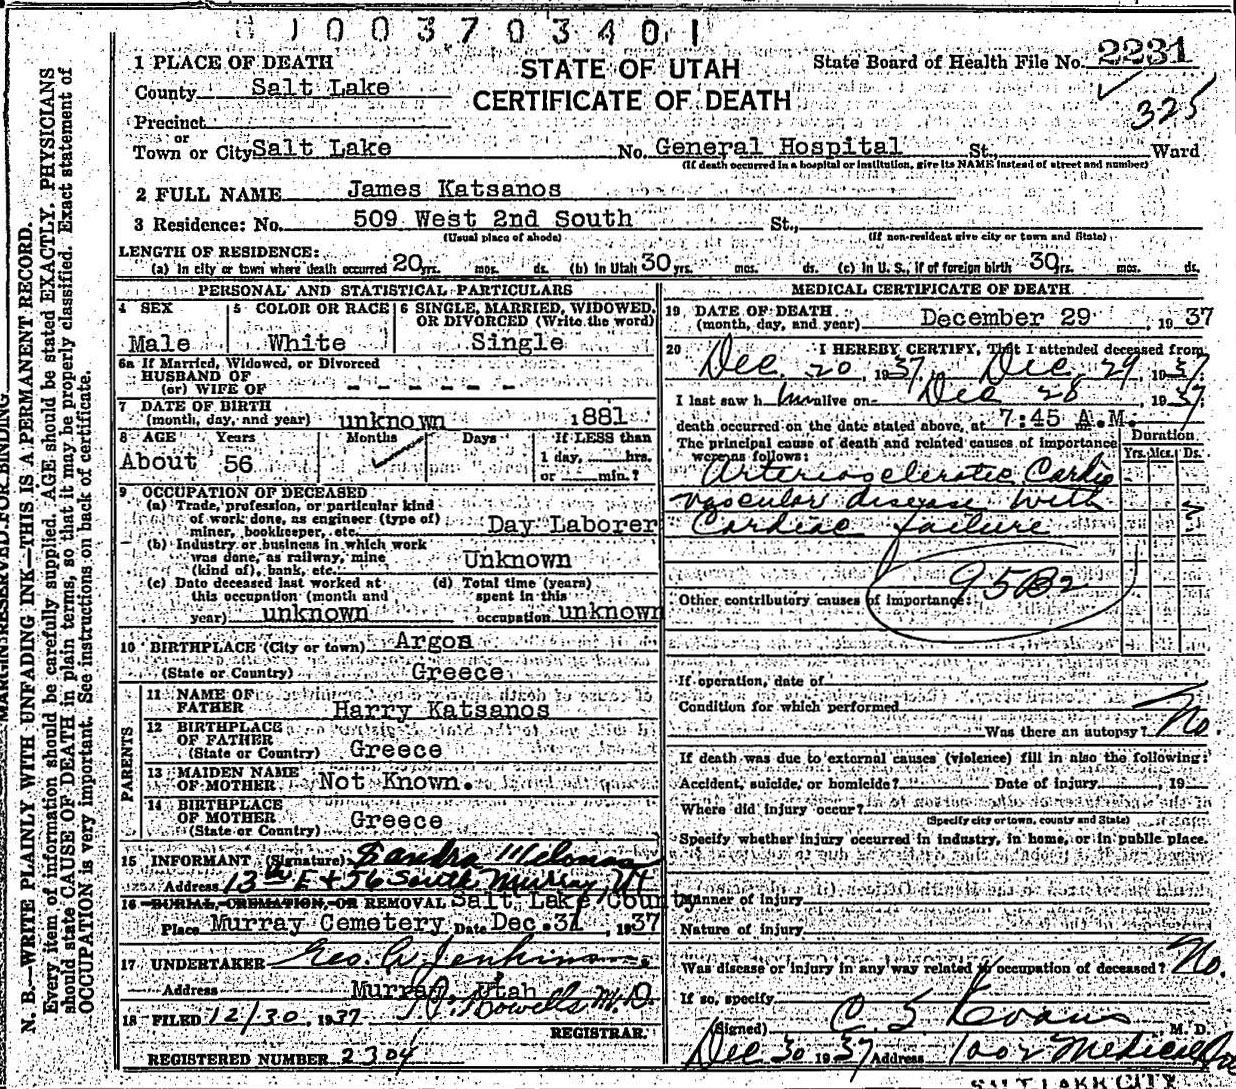 1003703401
1 PLACE OF DEATH
STATE OF UTAH
State Board of Health File No. 2231
County Salt Lake
CERTIFICATE OF DEATH
325
Precinct
or
Town or City Salt Lake No. General Hospital St., Ward
(If death occurred in a hospital or institution, give its NAME instead of street and number)
2 FULL NAME James Katsanos
3 Residence: No. 509 West 2nd South St.,
(Usual place of abode) (If non-resident give city or town and State)
LENGTH OF RESIDENCE:
(a) In city or town where death occurred 20 yrs. mos. ds. (b) In Utah 30 yrs. mos. ds. (c) In U. S., if of foreign birth 30 yrs. mos. ds.
PERSONAL AND STATISTICAL PARTICULARS
4 SEX
Male
5 COLOR OR RACE
White
6 SINGLE, MARRIED, WIDOWED,
OR DIVORCED (Write the word)
Single
6a If Married, Widowed, or Divorced
HUSBAND OF
(or) WIFE OF - - - - - -
7 DATE OF BIRTH
(month, day, and year) unknown 1881
8 AGE Years Months Days If LESS than
About 56 1 day, hrs.
or min.?
9 OCCUPATION OF DECEASED
(a) Trade, profession, or particular kind
of work done, as engineer (type of)
miner, bookkeeper, etc. Day Laborer
(b) Industry or business in which work
was done, as railway, mine
(kind of), bank, etc. Unknown
(c) Date deceased last worked at
this occupation (month and
year) unknown
(d) Total time (years)
spent in this
occupation unknown
10 BIRTHPLACE (City or town) Argos
(State or Country) Greece
PARENTS
11 NAME OF
FATHER Harry Katsanos
12 BIRTHPLACE
OF FATHER
(State or Country) Greece
13 MAIDEN NAME
OF MOTHER Not Known.
14 BIRTHPLACE
OF MOTHER
(State or Country) Greece
15 INFORMANT (Signature)
Address 13th E + 56 South Murray, Ut
16 BURIAL, CREMATION, OR REMOVAL Salt Lake County
Place Murray Cemetery Date Dec. 31, 1937
17 UNDERTAKER Geo. A Jenkins
Address Murray, Utah
18 FILED 12/30, 1937 M. D.
REGISTRAR.
REGISTERED NUMBER 2304
MEDICAL CERTIFICATE OF DEATH
19 DATE OF DEATH
(month, day, and year) December 29, 1937
20 I HEREBY CERTIFY, That I attended deceased from
Dec. 20, 1937, Dec. 29, 1937
I last saw him alive on Dec 28, 1937
death occurred on the date stated above, at 7:45 A.M.
The principal cause of death and related causes of importance
were as follows:
Duration
Yrs. Mos. Ds.
Arteriosclerotic Cardio
vascular disease with
Cardiac failure
95B2
Other contributory causes of importance:
If operation, date of
Condition for which performed
Was there an autopsy? No.
If death was due to external causes (violence) fill in also the following:
Accident, suicide, or homicide? Date of injury, 19
Where did injury occur?
(Specify city or town, county and State)
Specify whether injury occurred in industry, in home, or in public place.
Manner of injury
Nature of injury
Was disease or injury in any way related to occupation of deceased? No.
If so, specify
(Signed) C. S Evans M. D.
Dec 30 1937 Address 1002 Medical
SALT LAKE CITY
MARGIN RESERVED FOR BINDING
N. B.—WRITE PLAINLY WITH UNFADING INK—THIS IS A PERMANENT RECORD.
Every item of information should be carefully supplied. AGE should be stated EXACTLY. PHYSICIANS
should state CAUSE OF DEATH in plain terms, so that it may be properly classified. Exact statement of
OCCUPATION is very important. See instructions on back of certificate.